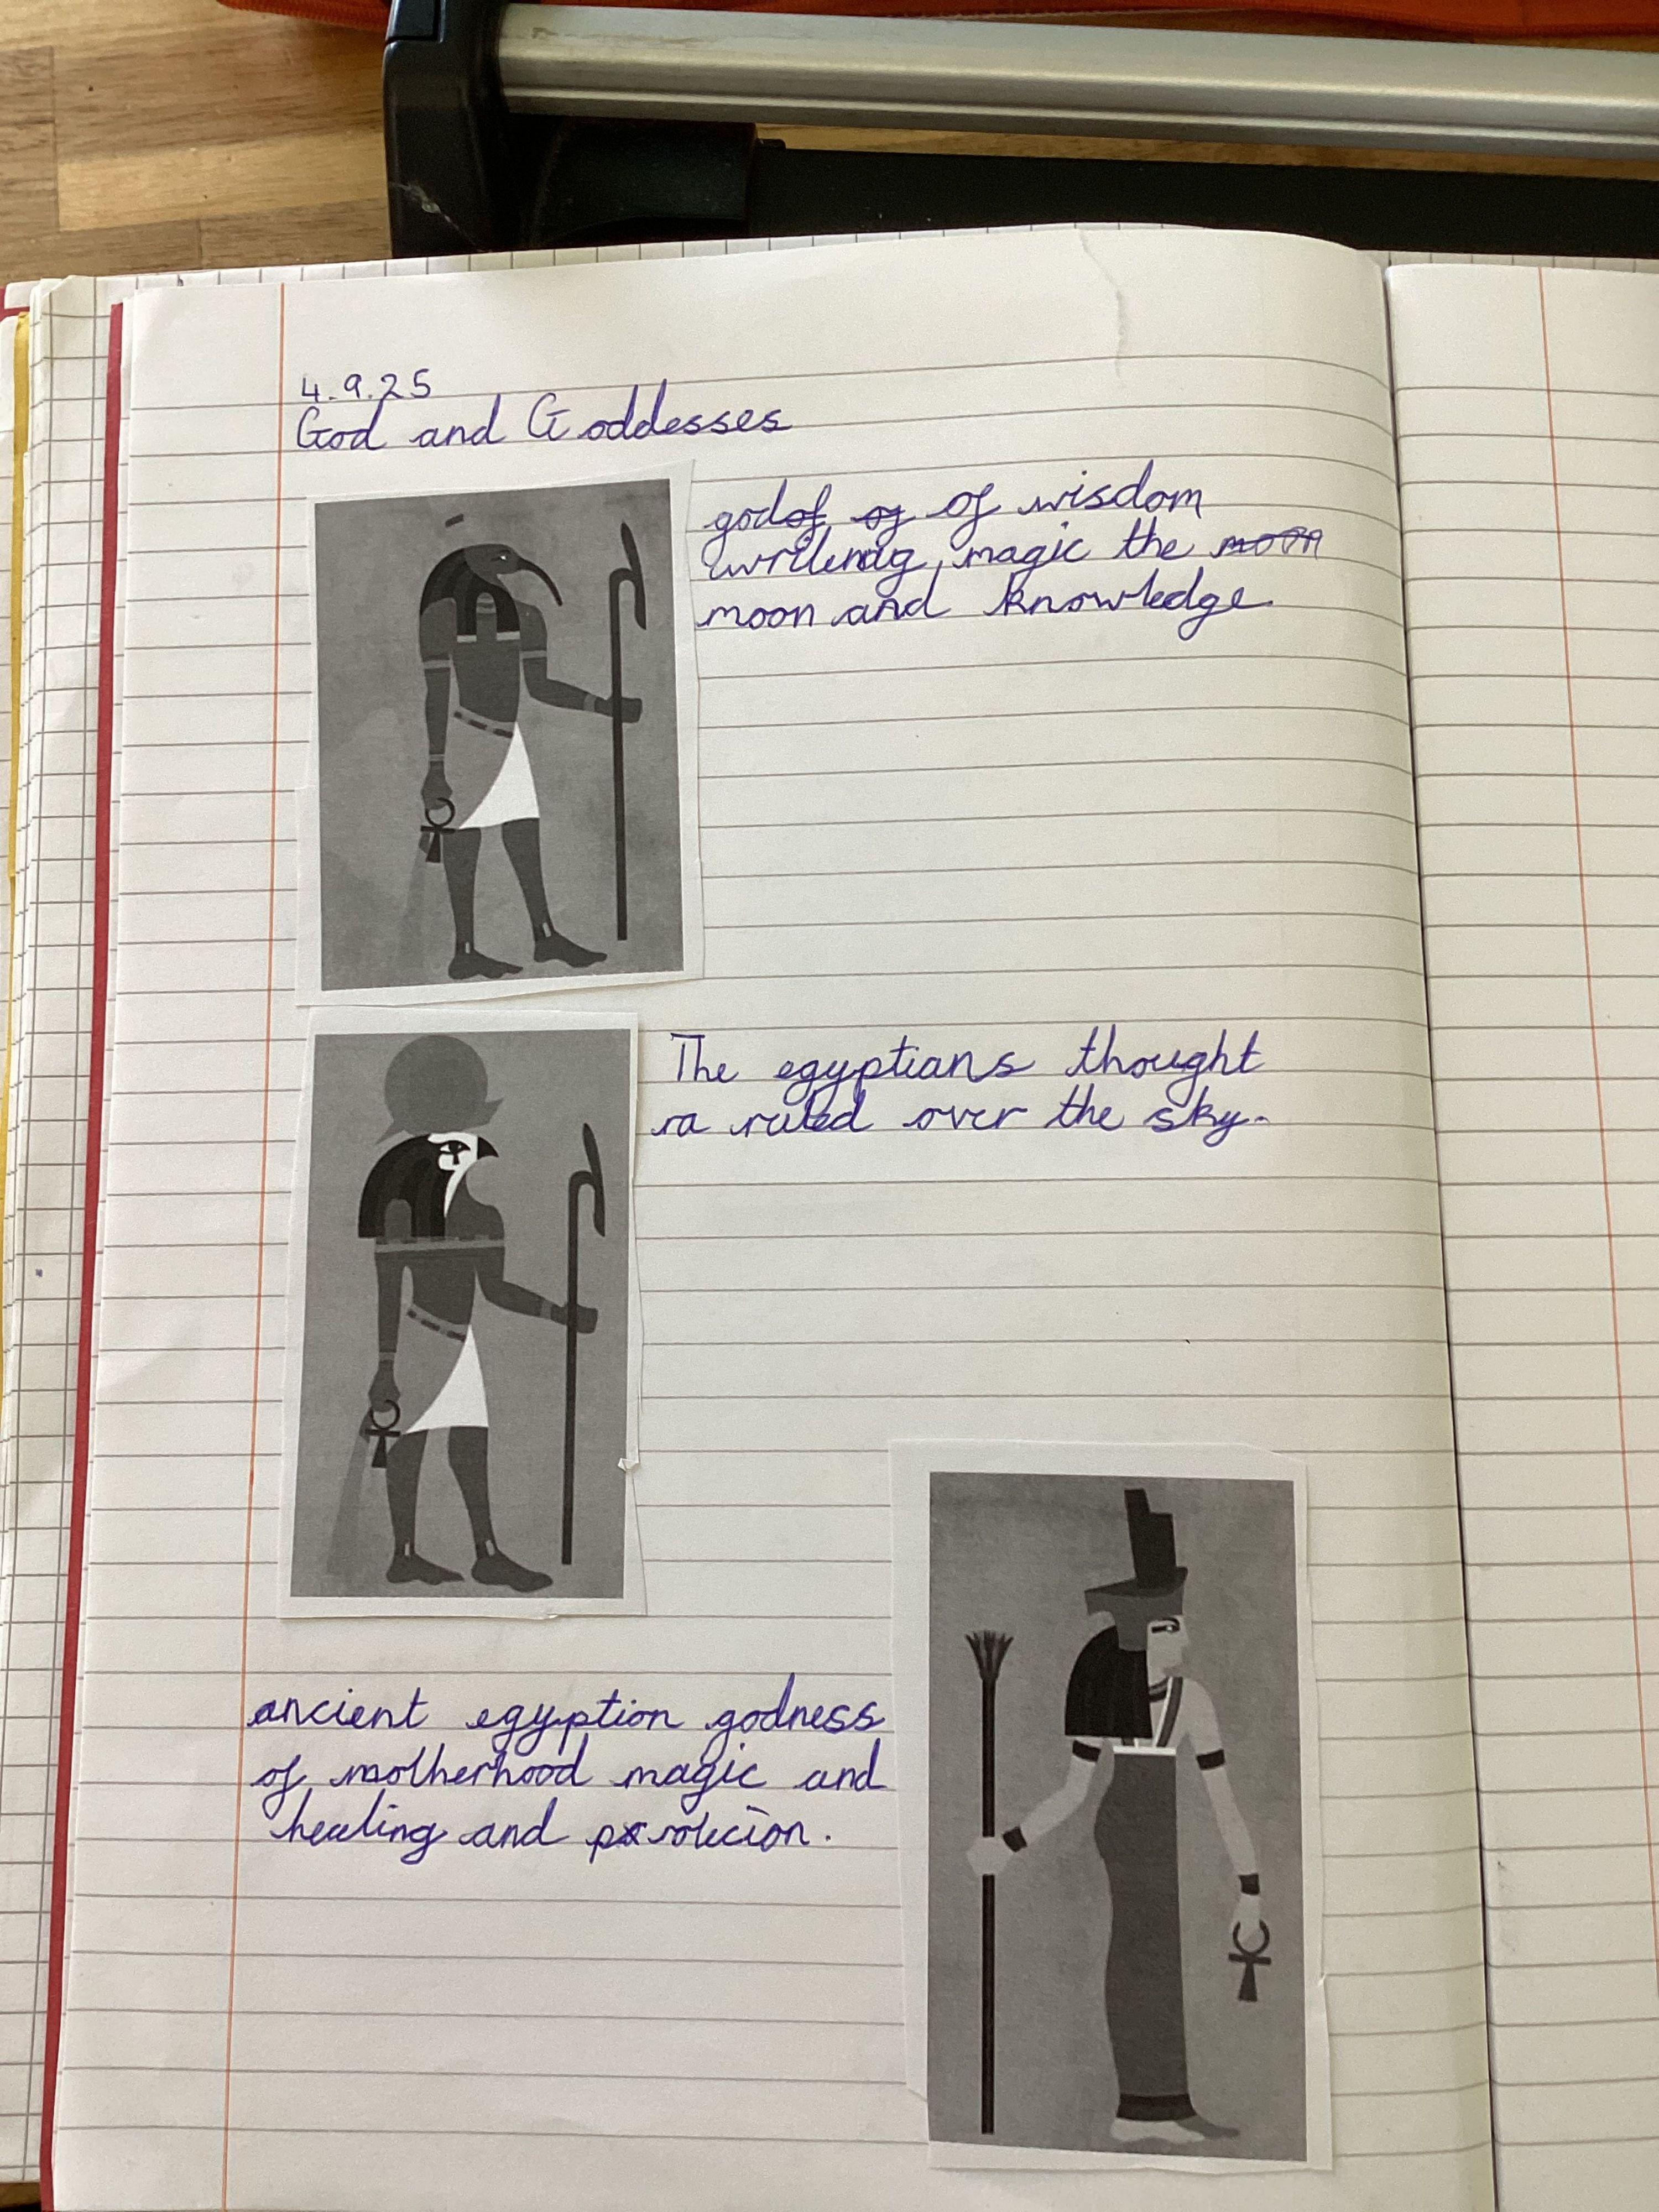 4.9.25
God and Goddesses
godof og of wisdom
magic the moon
moon and knowledge
The egyptians thought
ra ruled over the sky.
ancient egyption godness
of motherhood magic and
healing and